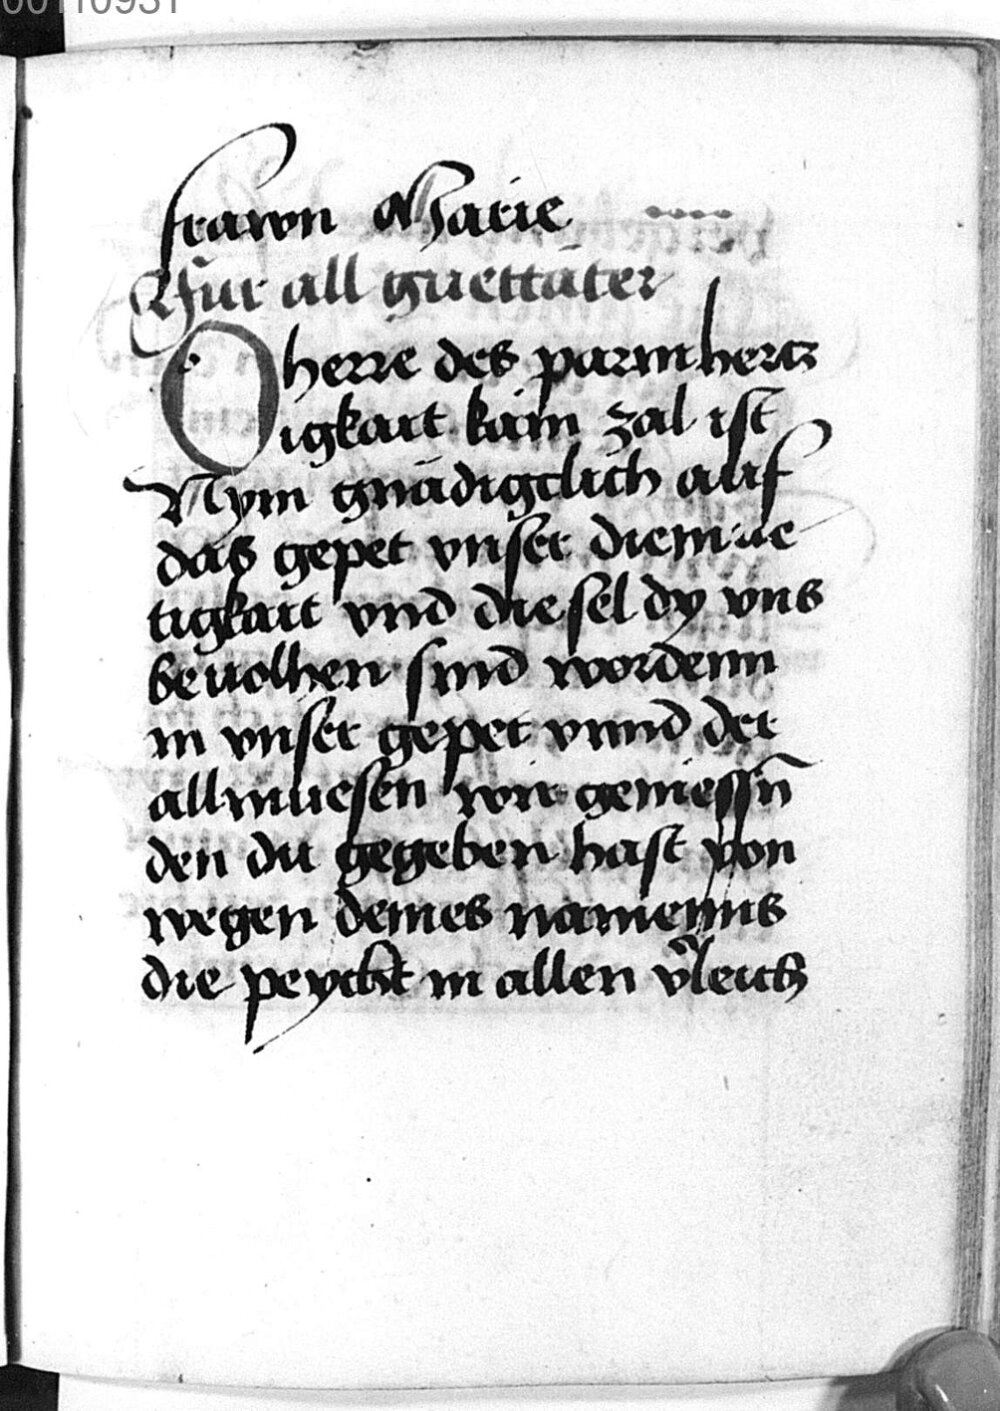 00110931
frawn Marie
Fur all guettäter
O herre des parmhertz
igkait kain zal ist
Nym gnädigclich auf
das gepet vnser diemue
tigkait vnd die sel dy vns
beuolhen sind wordenn
in vnser gepet vnnd der
allmuesen wir geniessn̄
den du gegeben hast von
wegen deines namenns
die peycht in allen v̾leich